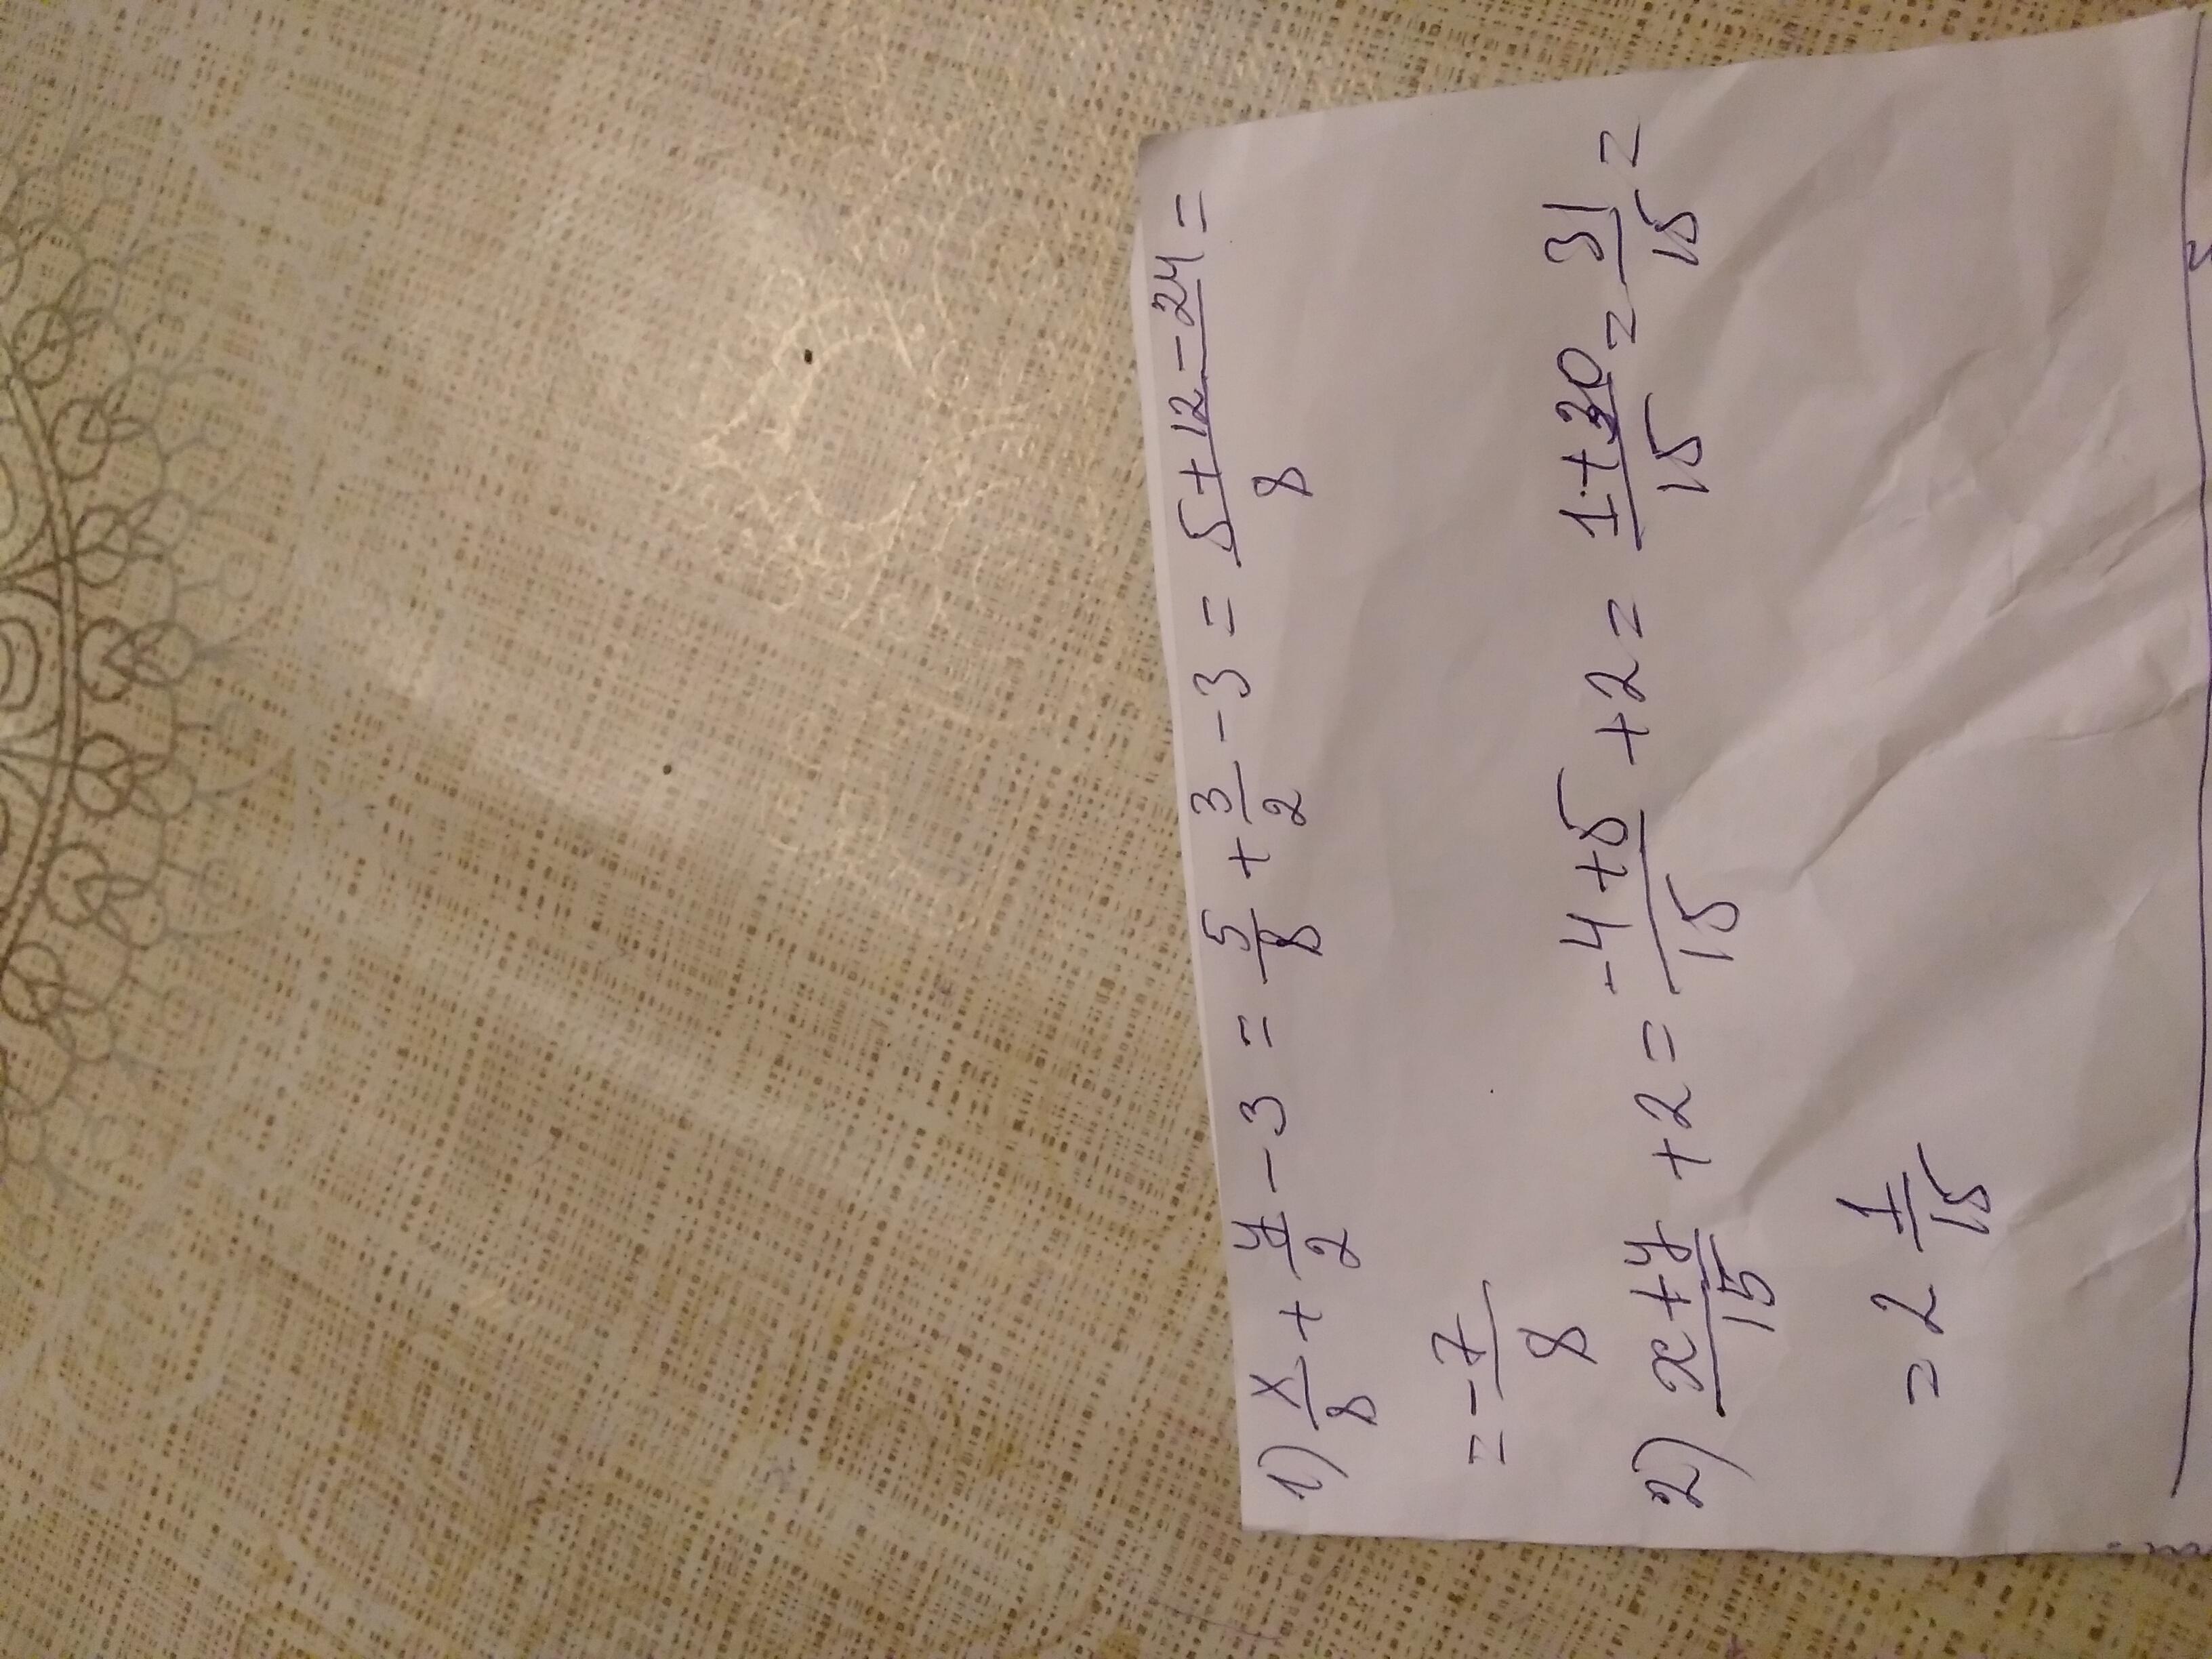 1) x/8 + y/2 - 3 = 5/8 + 3/2 - 3 = (5+12-24)/8 =
= -7/8
2) (x+y)/15 + 2 = (-4+5)/15 + 2 = (1+30)/15 = 31/15 =
= 2 1/15